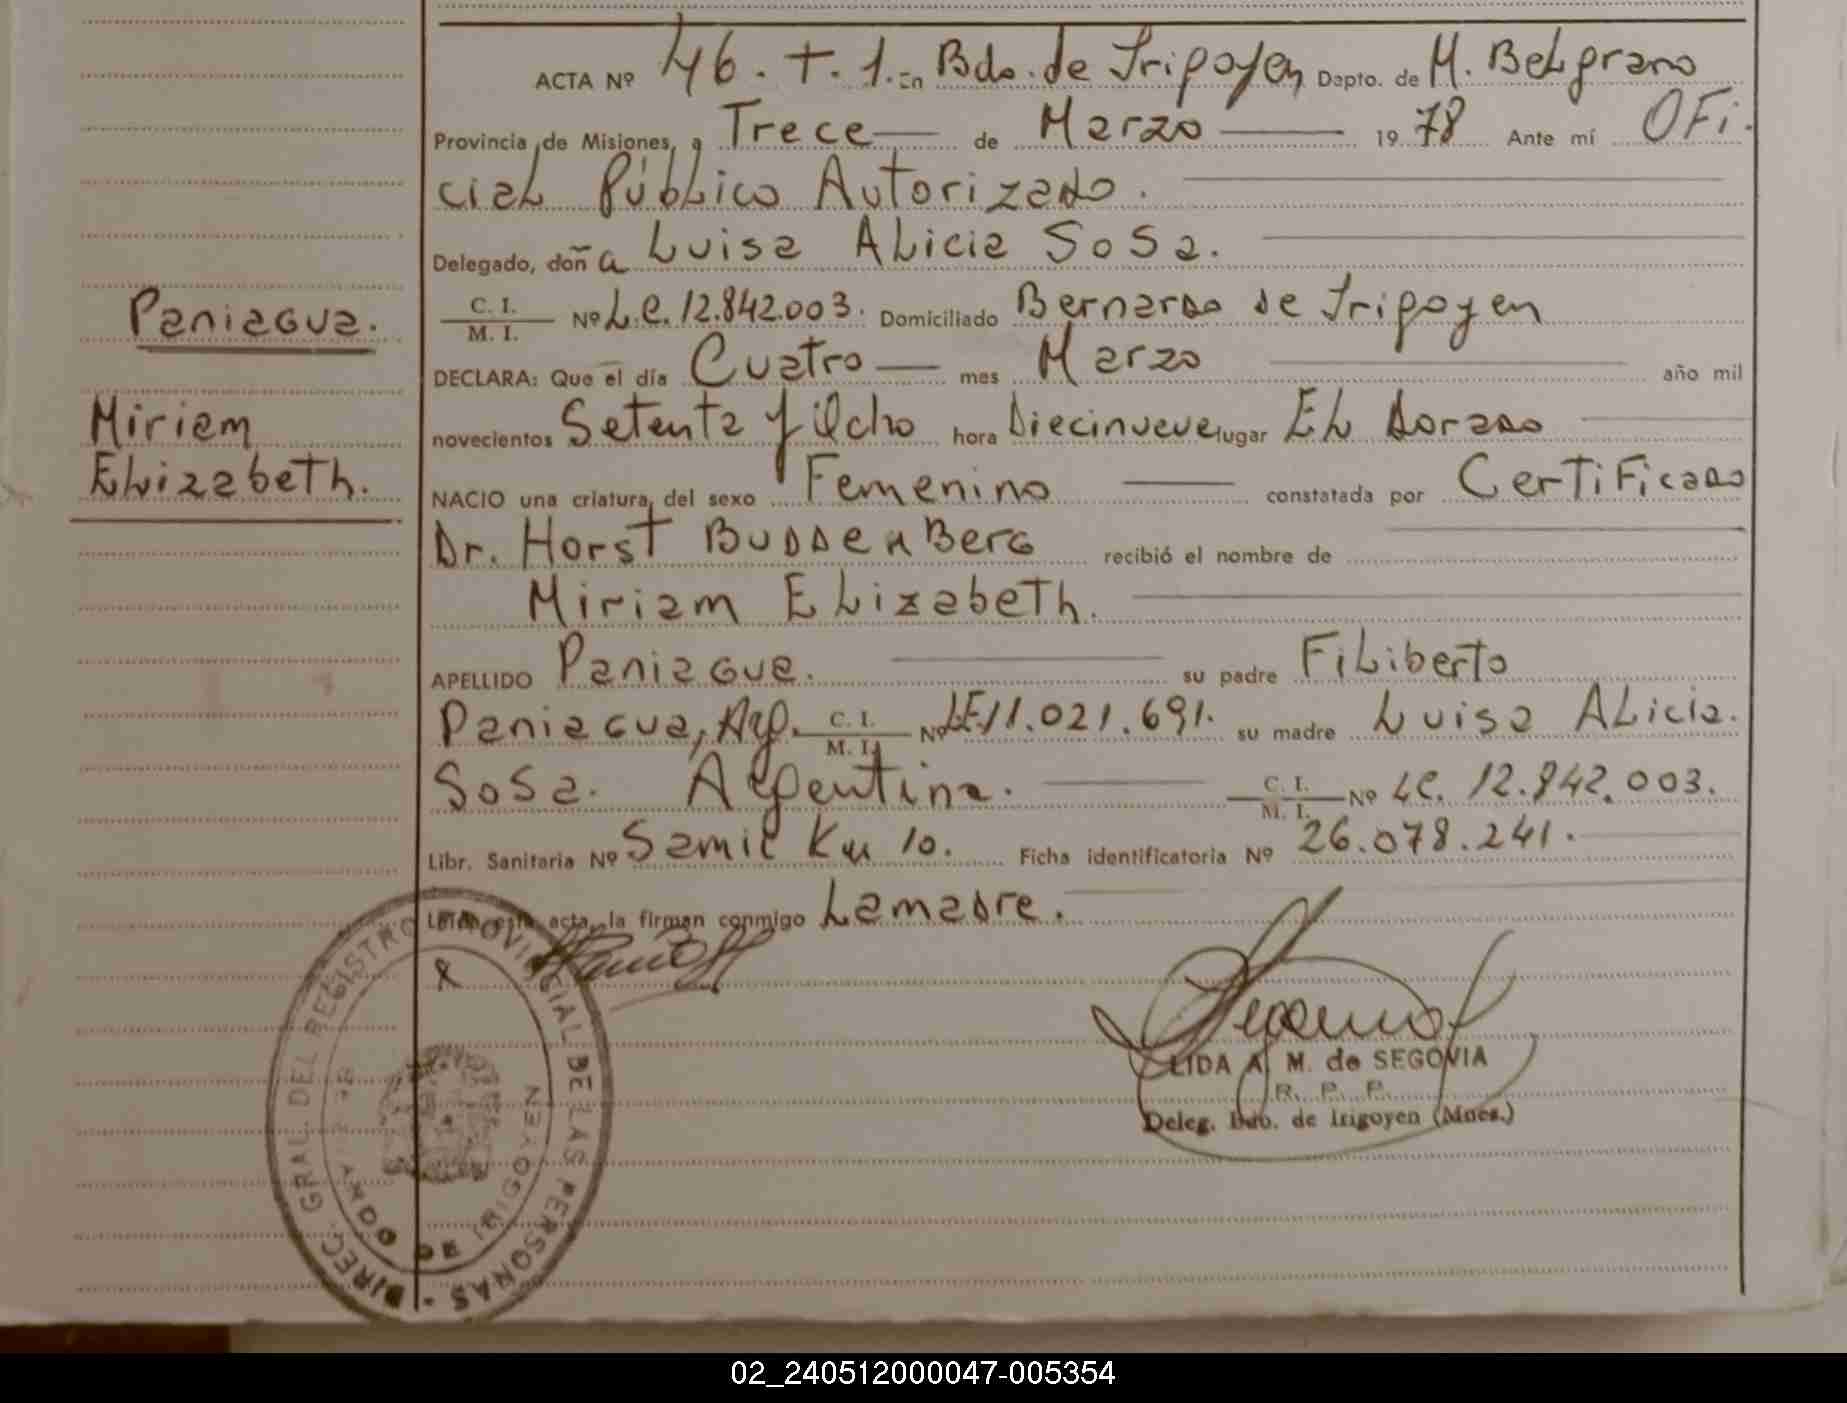 ACTA Nº 46. T. 1. En Bdo. de Irigoyen Dapto. de M. Belgrano
Provincia de Misiones, a Trece de Marzo 19 78 Ante mí OFi-
ciaL PúbLico Autorizado.
Delegado, doña Luisa ALicia Sosa.
C. I.
M. I. Nº L.C. 12.842.003. Domiciliado Bernardo de Irigoyen
DECLARA: Que el día Cuatro mes Marzo año mil
novecientos Setenta y Ocho hora Diecinueve lugar EL Dorado
NACIO una criatura, del sexo Femenino constatada por CerTiFicado
Dr. Horst BuddenBerg recibió el nombre de
Miriam ELizabeth.
APELLIDO Paniagua. su padre FiLiberto
Paniagua, Arg. C. I.
M. I. Nº LE 11.021.691. su madre Luisa ALicia.
Sosa. Argentina. C. I.
M. I. Nº LC. 12.842.003.
Libr. Sanitaria Nº Samic Km 10. Ficha identificatoria Nº 26.078.241.
Leída esta acta, la firman conmigo La madre.
Paniagua.
Miriam
ELizabeth.
LIDA A. M. de SEGOVIA
R. P. P.
Deleg. Bdo. de Irigoyen (Mnes.)
DIREC. GRAL. DEL REGISTRO PROVINCIAL DE LAS PERSONAS -
DE IRIGOYEN
02_240512000047-005354